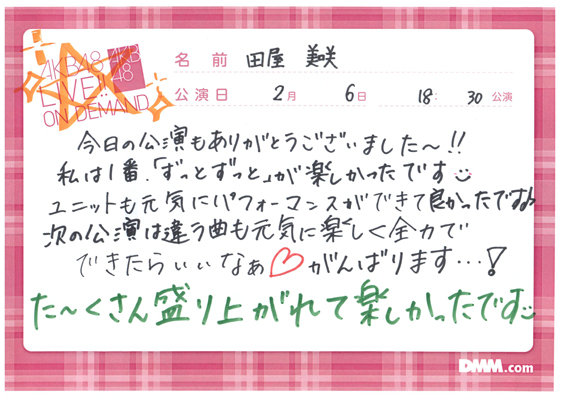 AKB48
LIVE!!
ON DEMAND
AKB
48
名前 田屋 美咲
公演日 2月 6日 18:30 公演
今日の公演もありがとうございました〜!!
私は1番、「ずっとずっと」が楽しかったです
ユニットも元気にパフォーマンスができて良かったです♪
次の公演は違う曲も元気に楽しく全力で
できたらいいなぁ♡がんばります…!
た〜くさん盛り上がれて楽しかったです
DMM.com